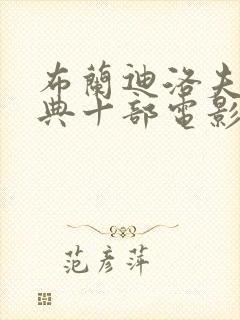 布蘭迪洛夫
典十部電影
范彥萍